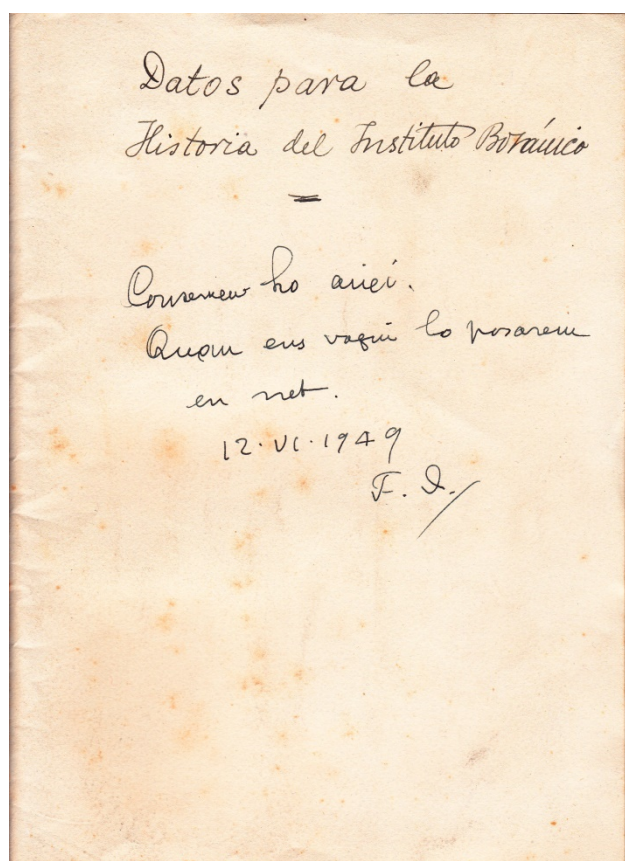 Datos para la
Historia del Instituto Botánico
Conserveu ho així.
Quan ens vagui lo posarem
en net.
12·VI·1949
F. D.